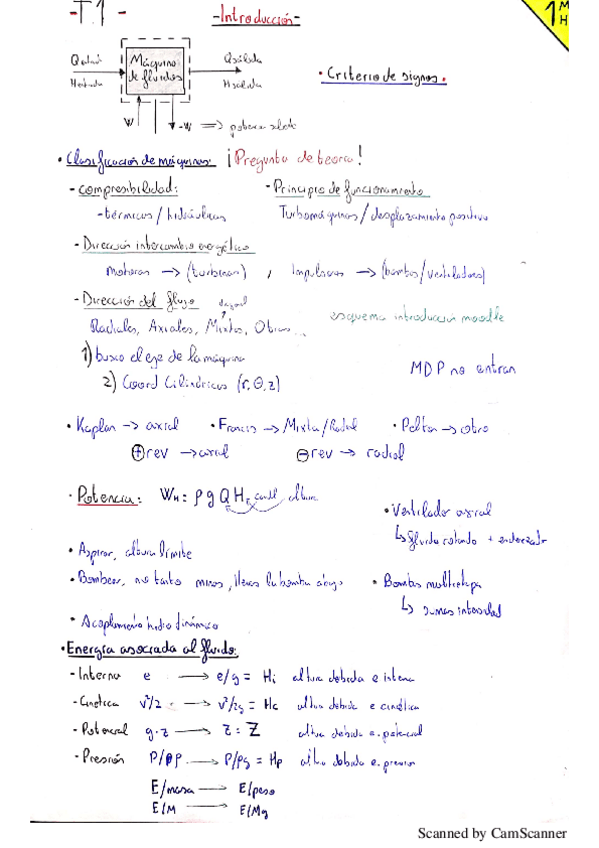 -T1 - -Introducción- 1 M H
Qentrada Máquina de fluidos Qsalida
Hentrada Hsalida
• Criterio de signos.
W -W => potencia saliente
• Clasificación de máquinas: ¡Pregunta de teoría!
- compresibilidad: - Principio de funcionamiento
- térmicas / hidráulicas Turbomáquinas / desplazamiento positivo
- Dirección intercambio energético
Motoras → (turbinas) , Impulsoras → (bombas/ventiladores)
- Dirección del flujo
Radiales, Axiales, Mixtos, Otros... esquema introducción moodle
1) busco el eje de la máquina
2) Coord Cilíndricas (r, θ, z) MDP no entran
• Kaplan → axial • Francis → Mixta/Radial • Pelton → otro
⊕ rev → axial ⊖ rev → radial
• Potencia: WH: ρ g Q H, caudal, altura
• Ventilador axial
↳ fluido rotando + enderezador
• Aspirar, altura límite
• Bombear, no tanto, llevas la bomba abajo • Bombas multietapa
↳
• Acoplamiento hidrodinámico
• Energía asociada al fluido:
- Interna e → e/g = Hi altura debida e interna
- Cinética v²/2 → v²/2g = Hc altura debida e cinética
- Potencial g·z → z = Z altura debida e. potencial
- Presión P/ρ → P/ρg = Hp altura debida e. presión
E/masa → E/peso
E/M → E/Mg
Scanned by CamScanner